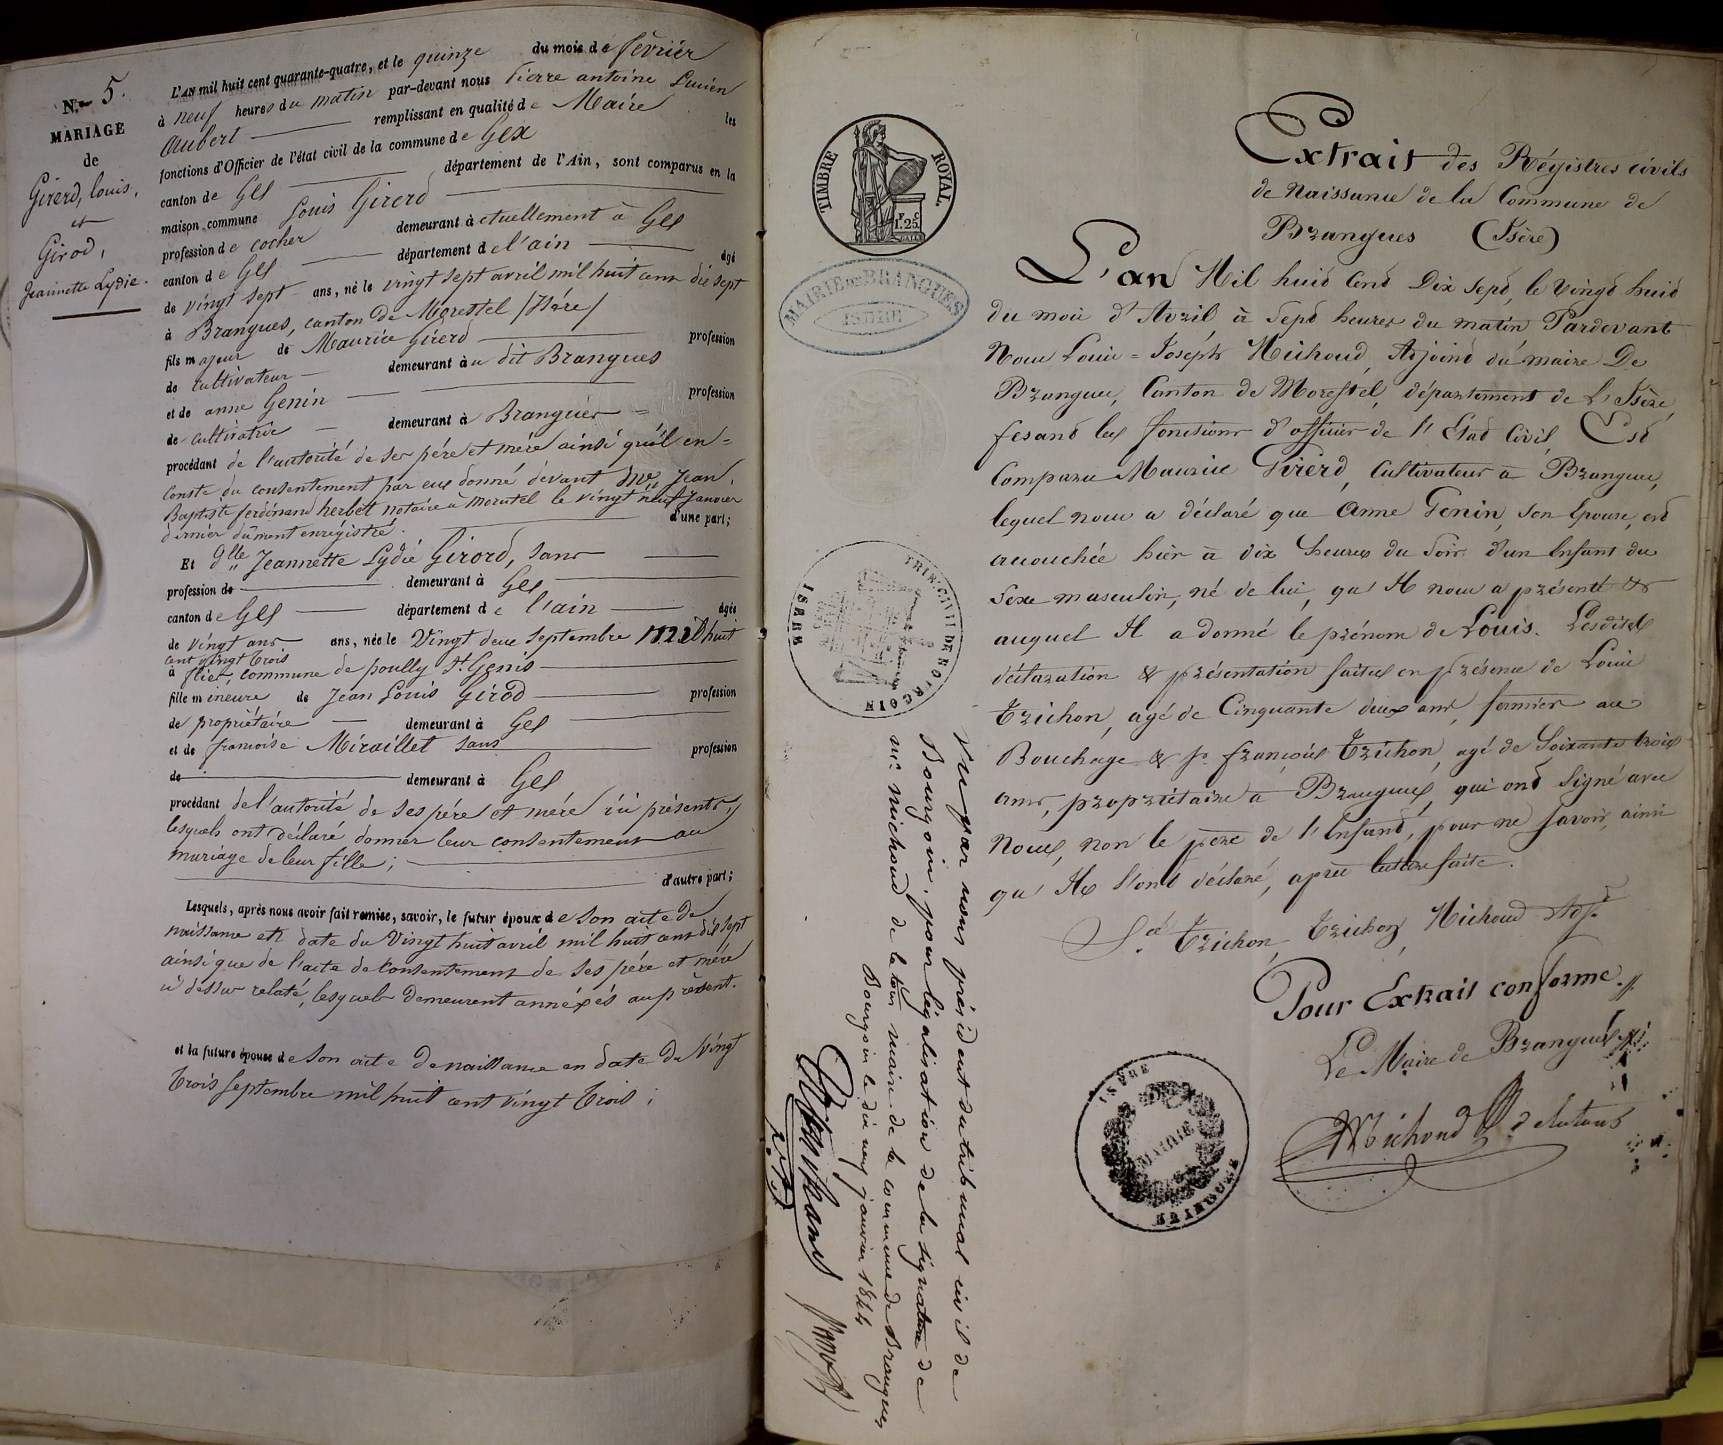 N.º 5.
MARIAGE
de
Girerd, Louis,
et
Girod,
Jeannette Lydie.
L'AN mil huit cent quarante-quatre, et le quinze du mois de février
à neuf heures du matin par-devant nous Pierre antoine Lucien
Aubert remplissant en qualité de Maire les
fonctions d'Officier de l'état civil de la commune de Gex
canton de Gex département de l'Ain, sont comparus en la
maison commune Louis Girerd
profession de cocher demeurant à ctuellement à Gex
canton de Gex département de l'ain âgé
de vingt sept ans, né le vingt sept avril mil huit cent dix sept
à Brangues, canton de Morestel /Isére/
fils majeur de Maurice Girerd profession
de cultivateur demeurant au dit Brangues
et de anne Genin profession
de cultivatrice demeurant à Brangues
procédant de l'autorité de ses pére et mére ainsi qu'il en=
conste du consentement par eux donné devant Jean,
Baptiste ferdinand herbét notaire à Morestel le vingt neuf Janvier
dernier dûment enrégistré. d'une part;
Et dlle Jeannette Lydie Girord, sans
profession de demeurant à Gex
canton de Gex département de l'ain âgée
de vingt ans ans, née le Vingt deux Septembre mil huit
cent vingt trois
à flies, commune de pouilly St Genis
fille mineure de Jean Louis Girod profession
de propriétaire demeurant à Gex
et de francoise Miraillet sans profession
de demeurant à Gex
procédant de l'autorité de ses pére et mére ici présents,
lesquels ont déclaré donner leur consentement au
mariage de leur fille; d'autre part;
Lesquels, après nous avoir fait remise, savoir, le futur époux de son acte de
naissance en date du Vingt huit avril mil huit cent dix sept
ainsi que de l'acte de consentement de ses pére et mére
ci dessus relaté, lesquels demeurent annéxés au présent.
et la future épouse de son acte de naissance en date du Vingt
trois Septembre mil huit cent vingt trois;
TIMBRE ROYAL
F. C.
1.25.
MAIRIE DE BRANGUES
ISERE
TRIB. CIVIL DE BOURGOIN
ISERE
Extrait des Régistres civils
de Naissance de la Commune de
Brangues (Isère)
L'an Mil huit Cent Dix Sept, le Vingt huit
du mois d'Avril, à Sept heures du matin Pardevant
Nous Louis = Joseph Michoud, Adjoint du maire De
Brangues, Canton de Morestel, département de L'Isère,
fesant les fonctions d'officier de l'Etat Civil, Est
Comparu Maurice Girerd, Cultivateur à Brangues,
lequel nous a déclaré que Anne Genin, Son Epouse, est
accouchée hier à dix heures du Soir d'un Enfant du
Sexe masculin, né de lui, qu'Il nous a présenté &
auquel Il a donné le prénom de Louis. Lesdites
déclaration & présentation faites en présence de Louis
Trichon, agé de Cinquante deux ans, fermier au
Bouchage & Jh françois Trichon, agé de Soixante trois
ans, propriétaire à Brangues, qui ont Signé avec
Nous, non le père de l'Enfant, pour ne Savoir, ainsi
qu'Ils l'ont déclaré, après lecture faite.
S.é Trichon, Trichon, Michoud Adjt
Pour Extrait conforme.
Le Maire de Brangues
Michoud delatour
ISERE
MAIRIE
BRANGUES
Vu par nous président du tribunal civil de
Bourgoin, pour légalisation de la signature de
mr. michoud de latour maire de la commune de Brangues
Bourgoin le dix neuf janvier 1844